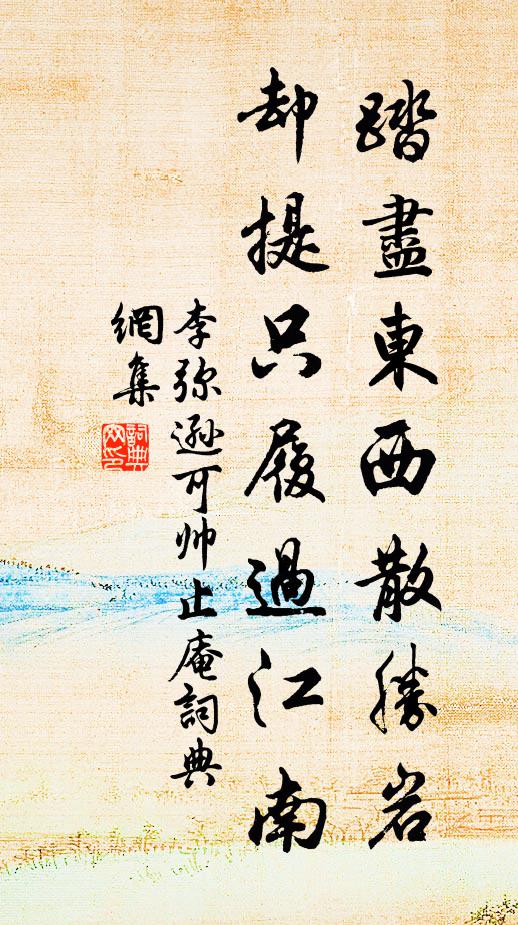 踏盡東西散勝岩
却提只履過江南
李弥遜可帅止庵詞典
網集
詞典